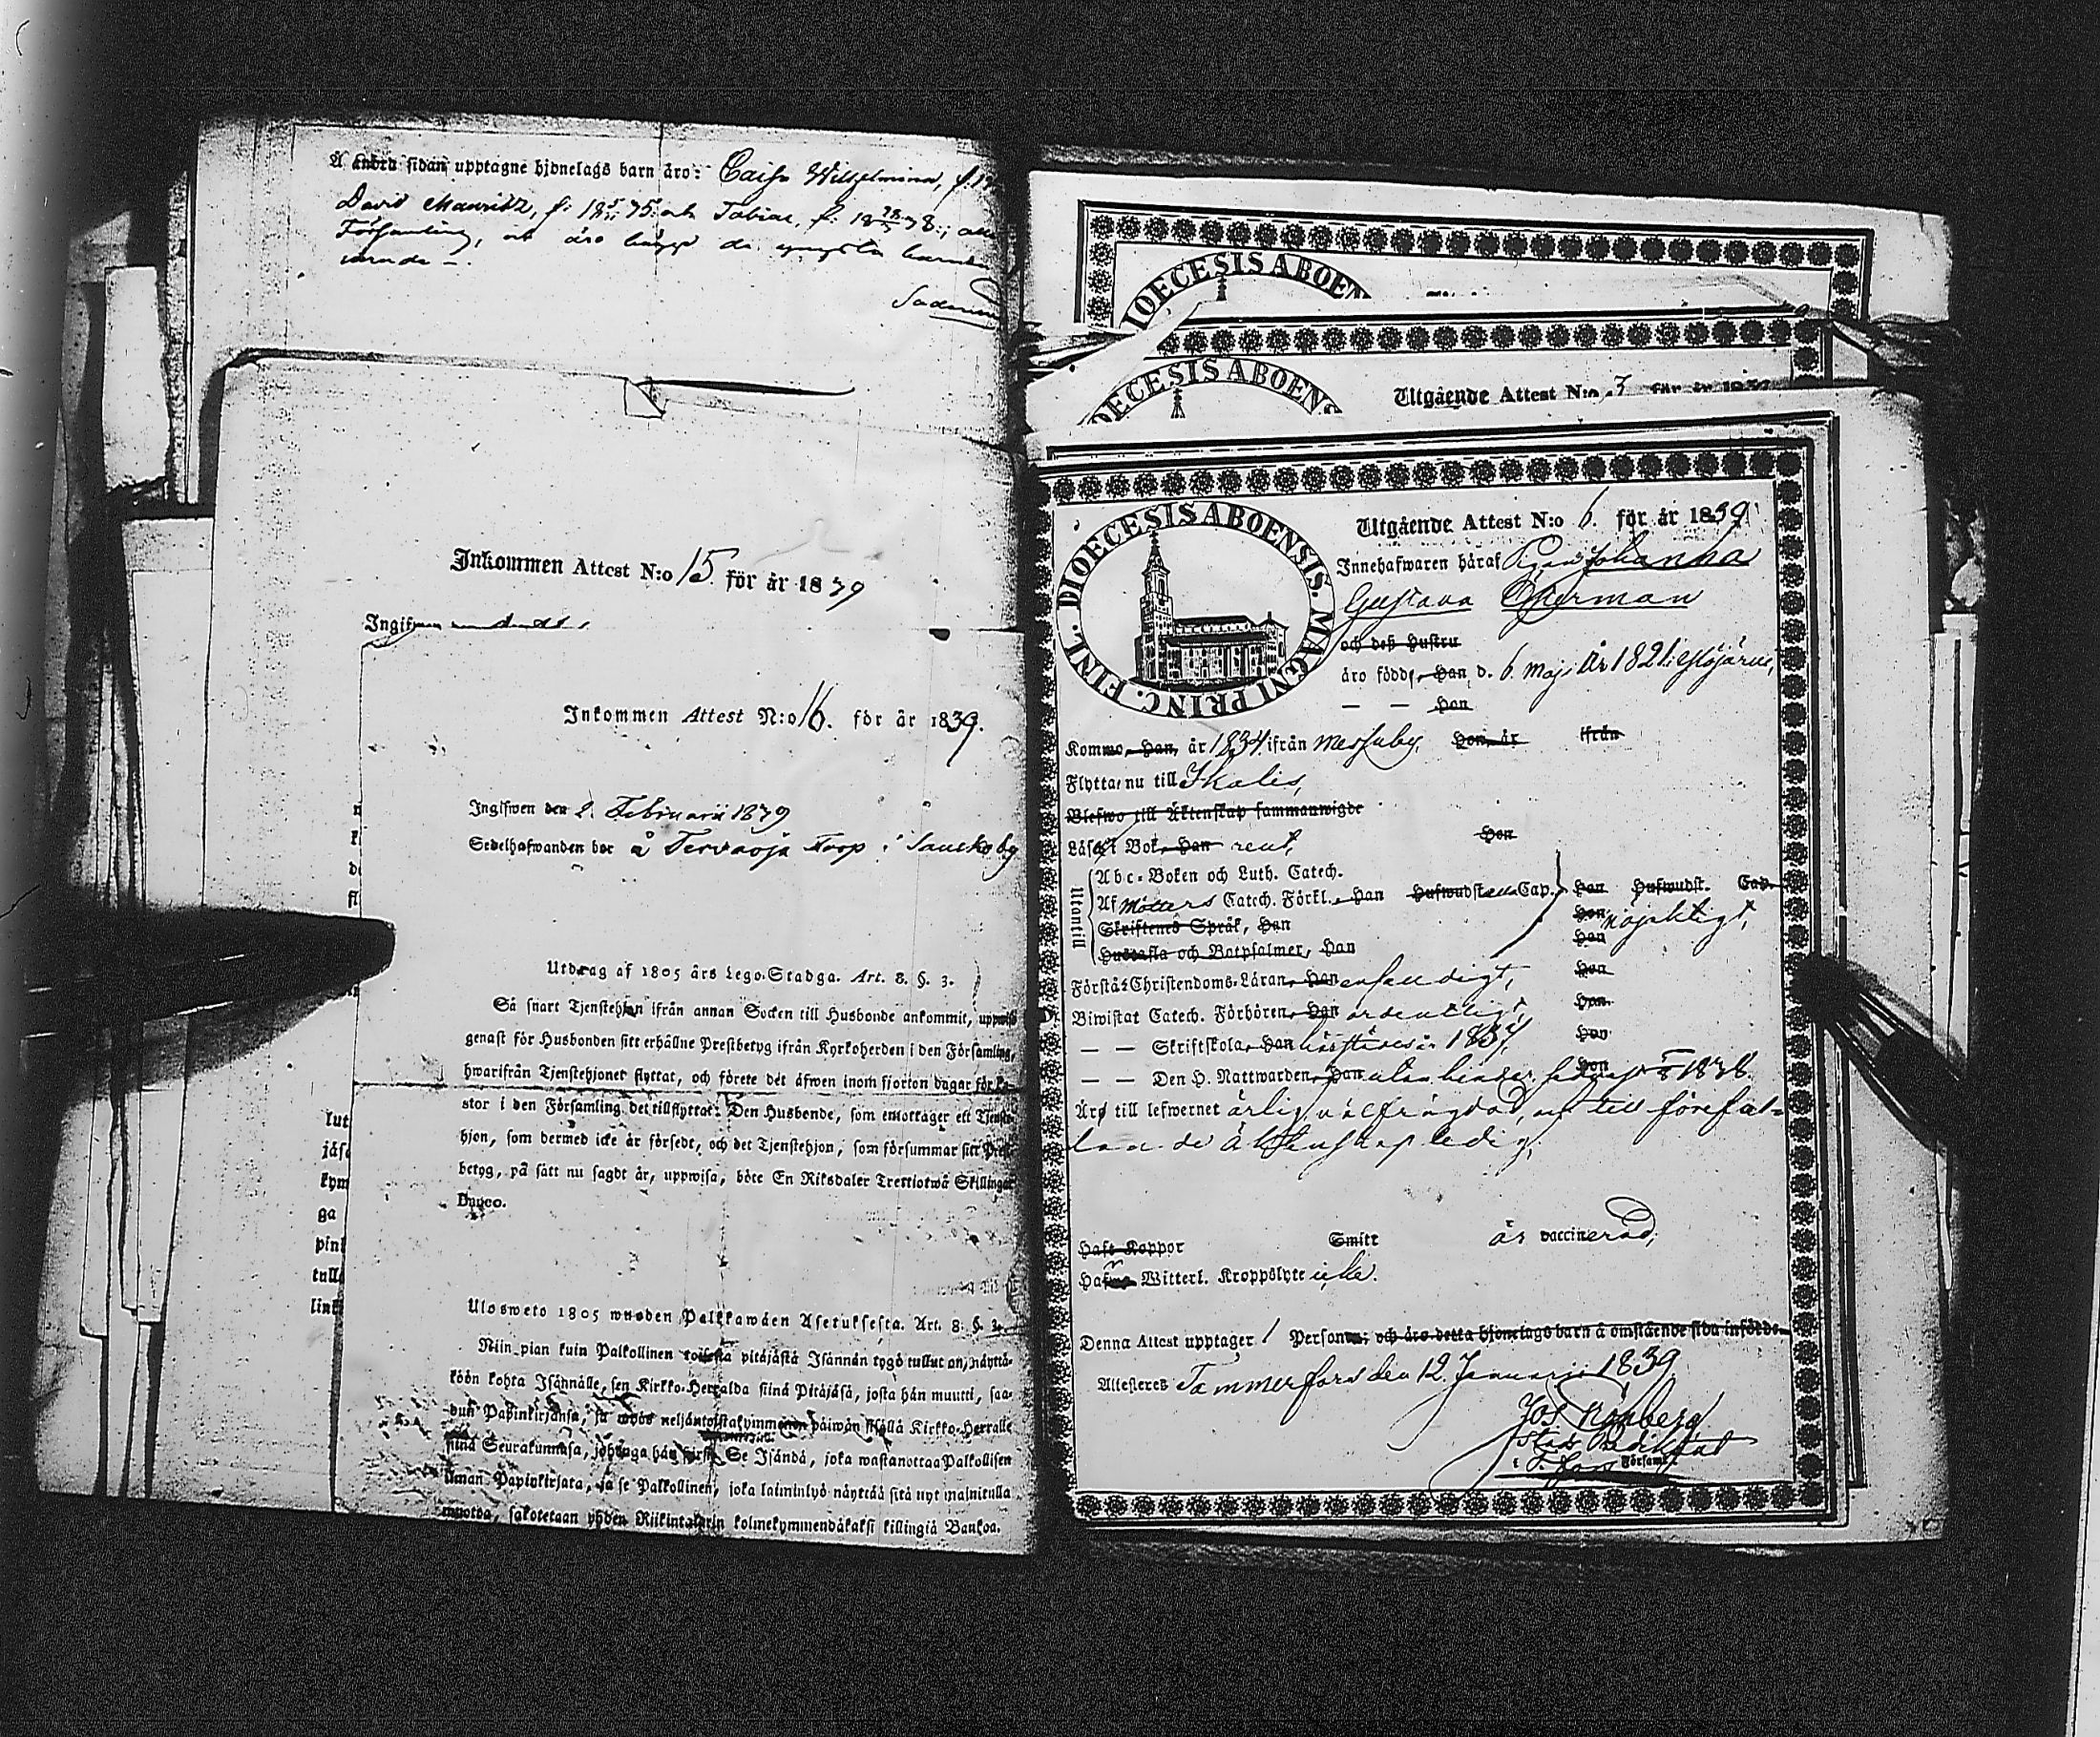 Å andra sidan upptagne hjonelags barn äro: Caisa Wilhelmina, f.
David Mauritz, f: och Tobias, f.
Församling, och äro de yngsta
Inkommen Attest N:o 15 för år 1839
Inkommen Attest N:o 16. för år 1839.
Ingifwen den 2. Februarii 1839
Sedelhafwanden bor å Tervaoja Torp i
Utdrag af 1805 års Lego-Stadga. Art. 8. §. 3.
Så snart Tjenstehjon ifrån annan Socken till Husbonde ankommit, uppwise
genast för Husbonden sitt erhållne Prestbetyg ifrån Kyrkoherden i den Församling,
hwarifrån Tjenstehjonet flyttat, och förete det äfwen inom fjorton dagar för
stor i den Församling det tillflyttat. Den Husbonde, som emottager ett Tjenste-
hjon, som dermed icke är försedt, och det Tjenstehjon, som försummar sitt Prest-
betyg, på sätt nu sagdt är, uppwisa, böte En Riksdaler Trettiotwå Skillingar
Banco.
Ulosweto 1805 wuoden Palkkawäen Asetuksesta. Art. 8. §. 3.
Niin pian kuin Palkollinen toisesta pitäjästä Isännän tygö tullut on, näyttä-
köön kohta Isännälle, sen Kirkko-Herralda siinä Pitäjäsä, josta hän muutti, saa-
dun Papinkirjansa, ja myös neljäntoistakymmenen päiwän sisällä Kirkko-Herralle
siinä Seurakunnasa, johonga hän Se Isändä, joka wastanottaa Palkollisen
ilman Papinkirjata, ja se Palkollinen, joka laiminlyö näyttää sitä nyt mainitulla
muotoa, sakotetaan yhden Riikintalarin kolmekymmendäkaksi killingiä Bankoa.
DIOECESIS ABOENSIS. MAGNI PRINC. FINL.
Utgående Attest N:o 3 för år 1839
Utgående Attest N:o 6. för år 1839
Innehafwaren häraf Pigan Johanna
Gustava Österman
och deß Hustru
äro födde, Han d. 6 Maji År 1821 i Ylöjärvi,
— — Hon
Kommo, Han, år 1834 ifrån Messuby, Hon, år ifrån
Flytta nu till Ikalis,
Blefwo till Äktenskap sammanwigde
Läsa i Bok, Han rent, Hon
Utantill
Abc-Boken och Luth. Catech.
Af Möllers Catech. Förkl., Han Hufwudst. alla Cap. Han Hufwudst. Cap.
Skriftenes Språk, Han Hon nöjaktigt,
Hustafla och Botpsalmer, Han Hon
Förstå Christendoms-Läran, Han enfaldigt, Hon
Biwistat Catech. Förhören, Han ordentligt, Hon
— — Skriftskola, Han härstädes år 1837, Hon
— — Den H. Nattwarden, Han utan hinder, sednast 1838. Hon
Äro till lefwernet ärlig, välfrägdad, och till förefal-
lande Äktenskap ledig,
Haft Koppor Smitt är vaccinerad,
Hafwa Witterl. Kroppslyte icke.
Denna Attest upptager 1 Person; och äro detta hjonelags barn å omstående sida införde.
Attesteras Tammerfors den 12. Januarii 1839
Jos. Rönberg